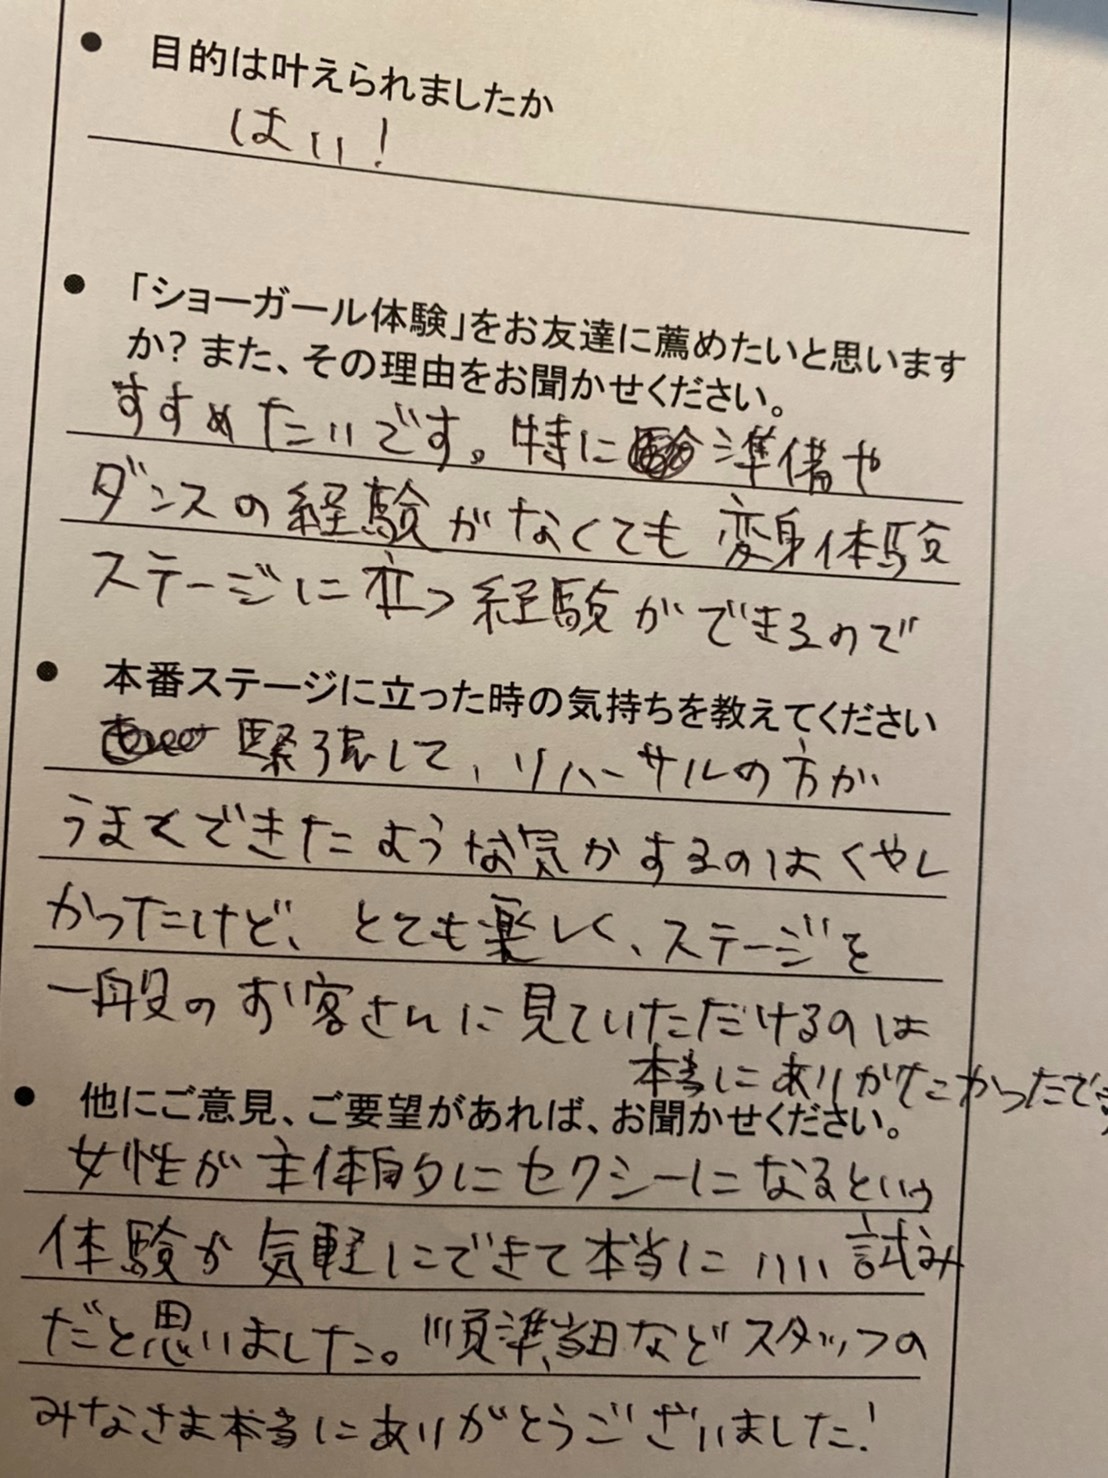 ● 目的は叶えられましたか
はい!
● 「ショーガール体験」をお友達に薦めたいと思います
か? また、その理由をお聞かせください。
すすめたいです。特に 準備や
ダンスの経験がなくても変身体験
ステージに立つ経験ができるので
● 本番ステージに立った時の気持ちを教えてください
緊張して、リハーサルの方が
うまくできたような気がするのはくやし
かったけど、とても楽しく、ステージを
一般のお客さんに見ていただけるのは
本当にありがたかったです
● 他にご意見、ご要望があれば、お聞かせください。
女性が主体的にセクシーになるという
体験が気軽にできて本当にいい試み
だと思いました。順準、当日などスタッフの
みなさま本当にありがとうございました!